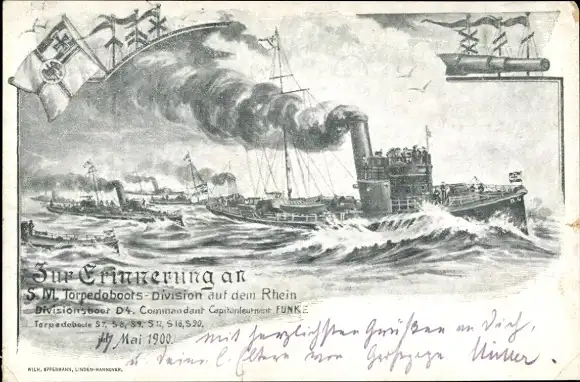 Zur Erinnerung an
S. M. Torpedoboots-Division auf dem Rhein
Divisionsboot D4. Commandant Capitänleutnant FUNKE
Torpedoboote S7, S8, S9, S
Mai 1900.
mit herzlichsten Grüßen an Dich,
u. Deine l. Eltern von
WILH. EPPELMANN, LINDEN-HANNOVER.